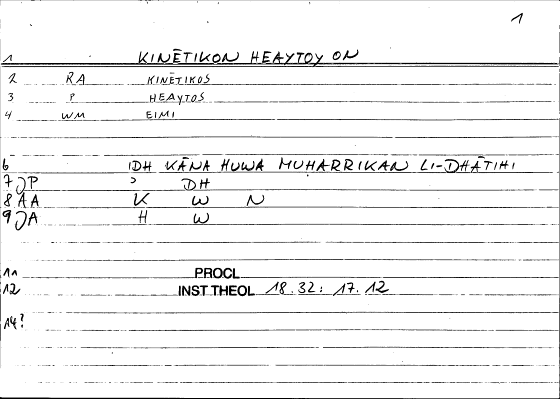 1
1 KINĒTIKON HEAYTOY ON
2 RA KINĒTIKOS
3 P HEAYTOS
4 WM EIMI
6 IDH KĀNA HUWA MUHARRIKAN LI-DHĀTIHI
7 JP ' DH
8 AA K W N
9 JA H W
11 PROCL
12 INST THEOL 18.32: 17.12
14?